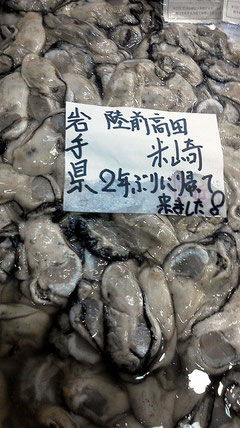 岩手県
陸前高田
米崎
2年ぶりに帰って
来ました!